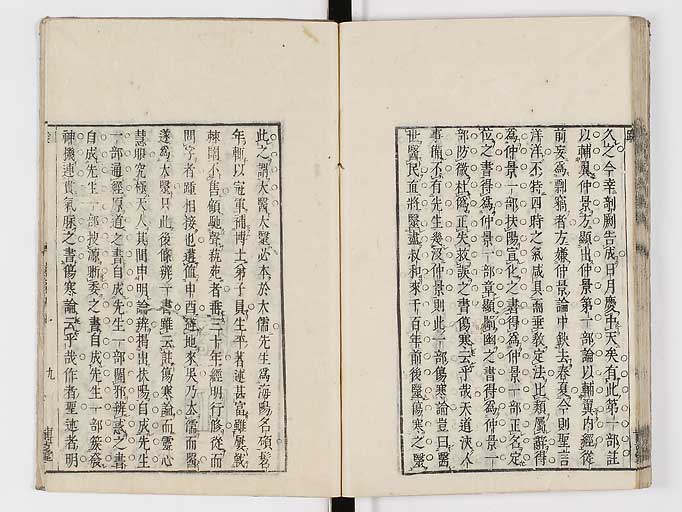 久之今幸剞劂告成日月慶中天矣有此第一部註
以輔翼仲景方顯出仲景第一部論以輔翼内經從
前妄為剽竊者方嫌仲景論中缺去春夏今則聖言
洋洋不特四時之氣咸具而垂教定法比類屬辭得
為仲景一部扶陽宣化之書得為仲景一部正名定
位之書得為仲景一部章顯闡幽之書得為仲景一
部防微杜偽正失救誤之書傷寒云乎哉天道決人
事備不有先生幾沒仲景則此一部傷寒論豈曰醫
世醫民直將醫盡叔和來千百年前後醫傷寒之醫
此之謂大醫大醫必本於大儒先生為海陽名碩髫
年輒以冠軍補博士弟子員生平著述甚富雖屢戰
棘闈不售領馳聲苑者垂三十年經明行修從而
問字者踵相接也遭值申酉避地來吳乃大儒而醫
遂為大醫只此後條辨一書雖云註傷寒論而靈心
慧眼究極天人其間申明論辨揭出扶陽自成先生
一部通經原道之書自成先生一部闢邪辨惑之書
自成先生一部披源斬委之書自成先生一部發
神機連貫氣脉之書傷寒論云乎哉作者聖述者明
九